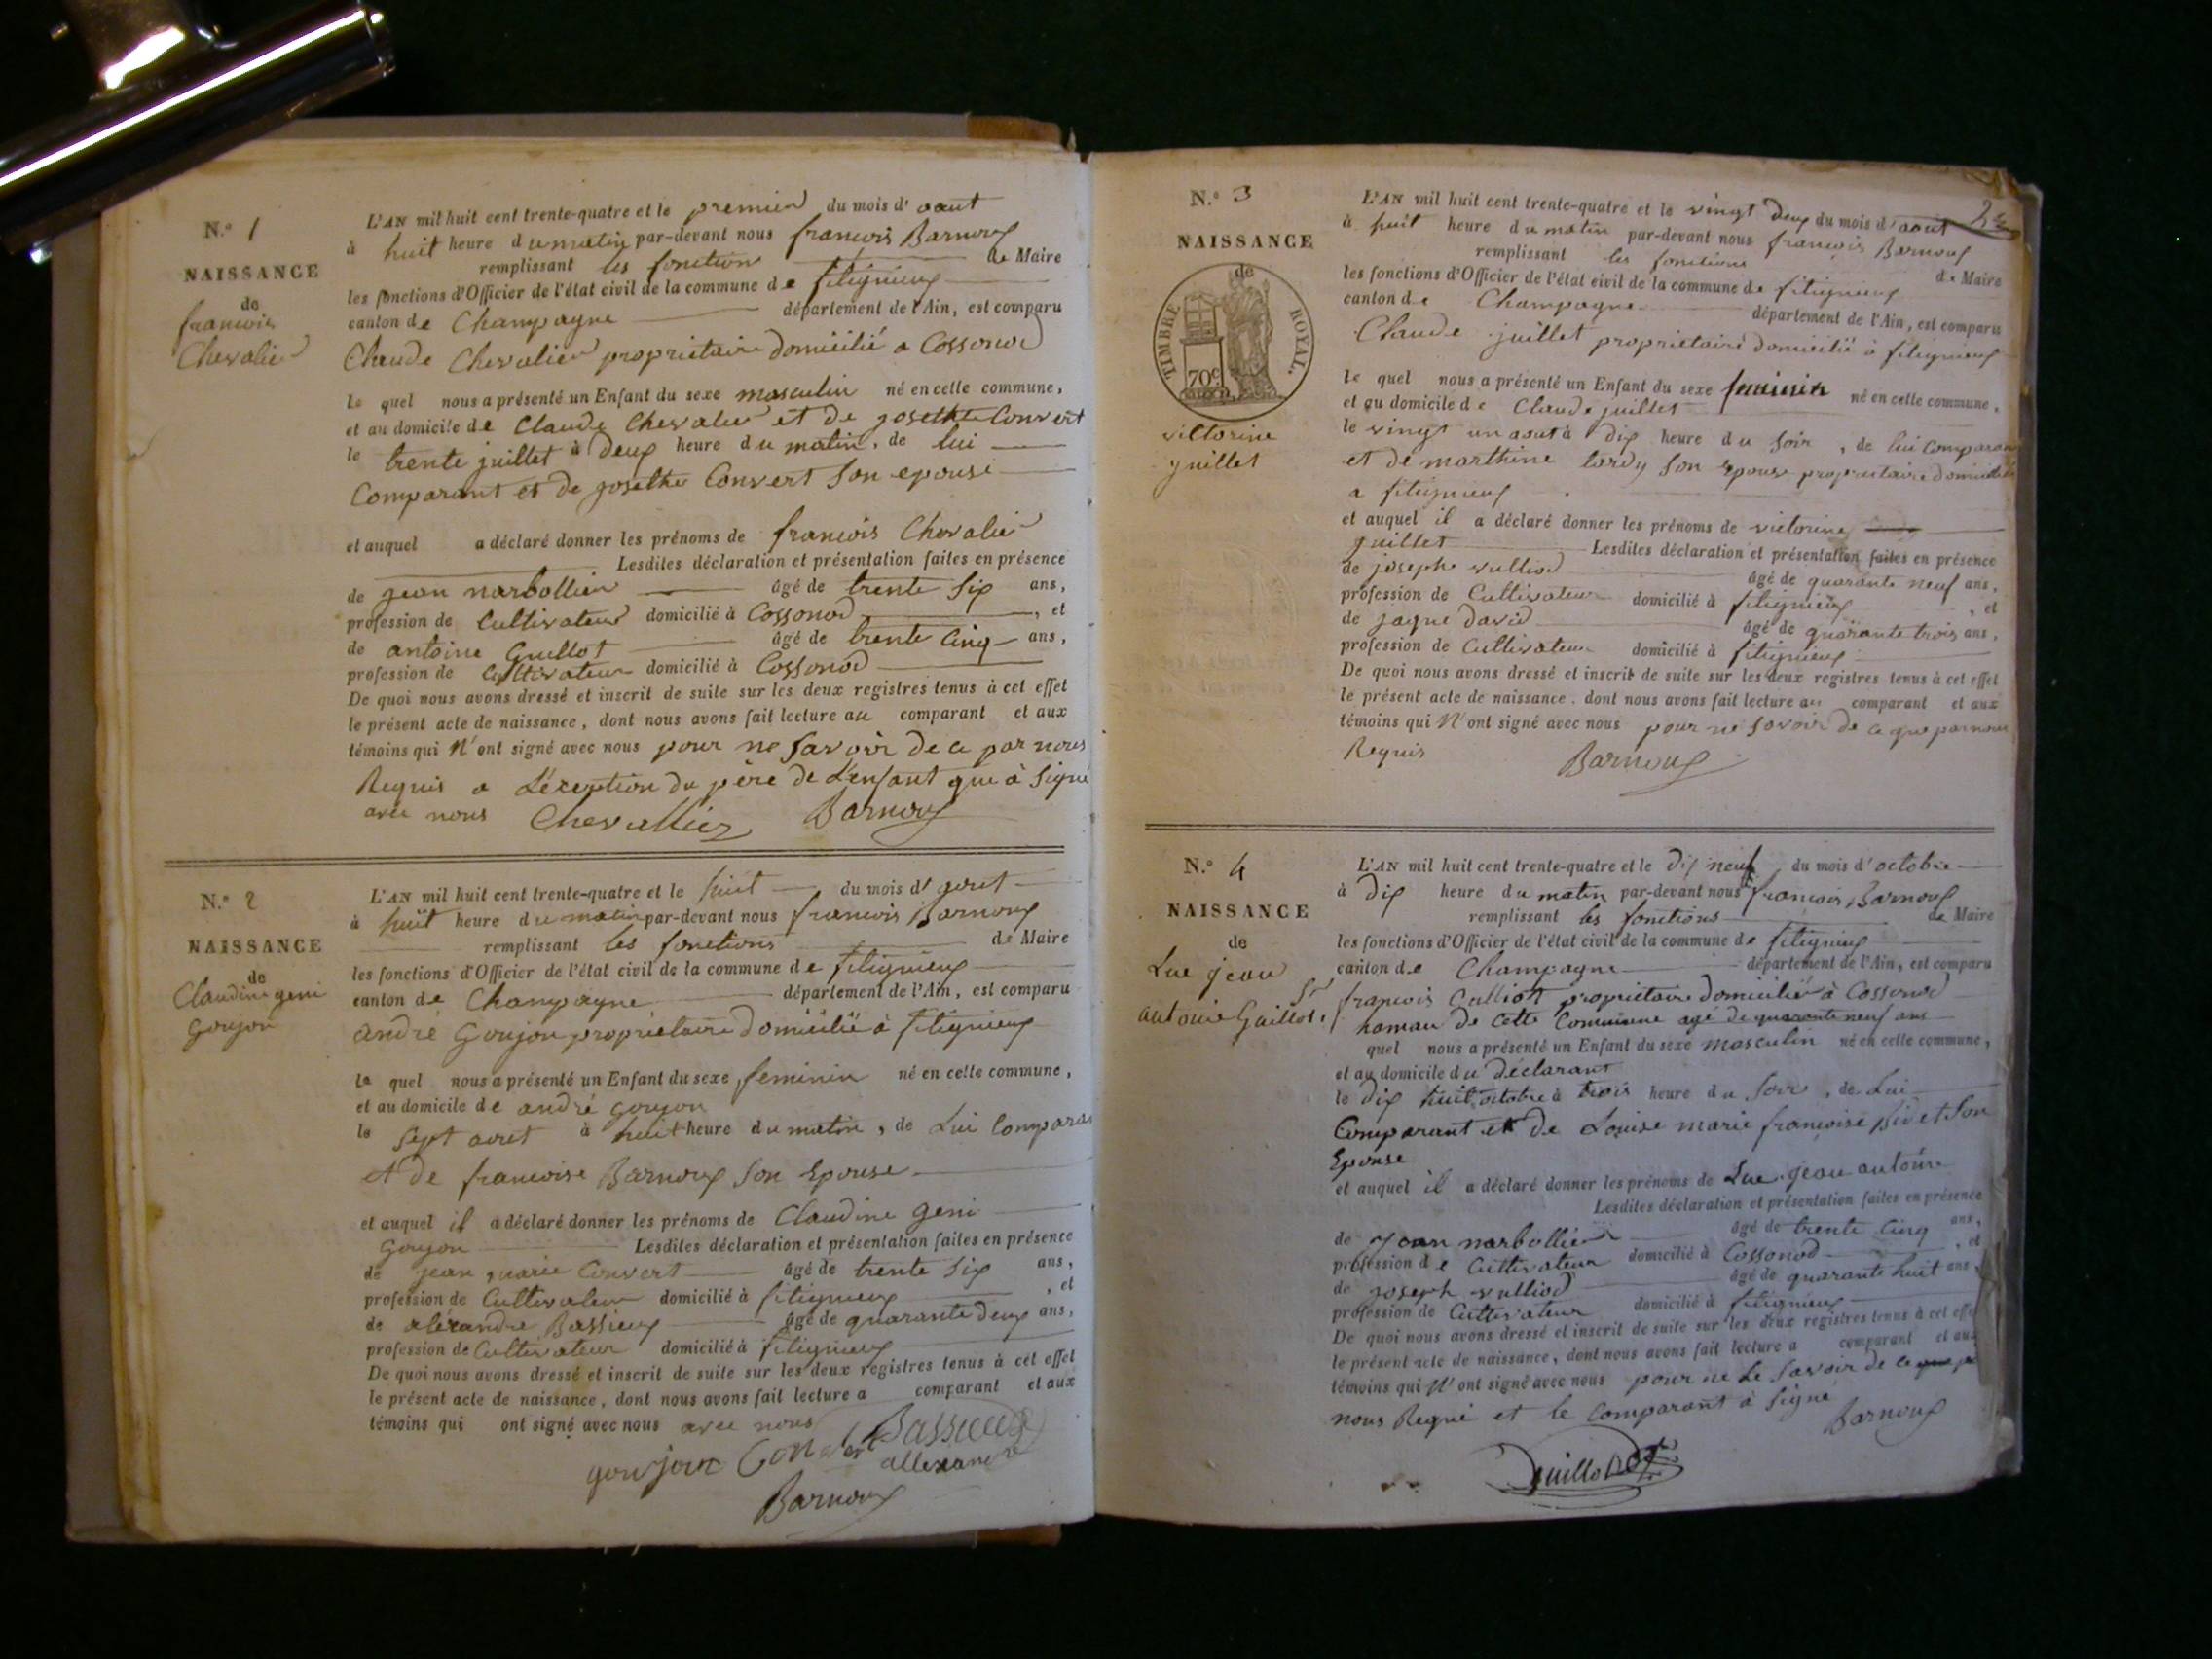 N.º 1
NAISSANCE
de
francois
Chevalier
L'AN mil huit cent trente-quatre et le premier du mois d' aout
à huit heure du matin par-devant nous francois Barnoux
remplissant les fonction de Maire
les fonctions d'Officier de l'état civil de la commune de fitignieux
canton de Champagne département de l'Ain, est comparu
Claude Chevalier proprietaire domicilié a Cossonod
le quel nous a présenté un Enfant du sexe masculin né en cette commune,
et au domicile de Claude Chevalier et de josethe Convert
le trente juillet à deux heure du matin, de lui
Comparant et de josethe Convert son epouse
et auquel a déclaré donner les prénoms de francois Chevalier
Lesdites déclaration et présentation faites en présence
de jean narbollier âgé de trente six ans,
profession de Cultivateur domicilié à Cossonod, et
de antoine Guillot âgé de trente cinq ans,
profession de Cultivateur domicilié à Cossonod
De quoi nous avons dressé et inscrit de suite sur les deux registres tenus à cet effet
le présent acte de naissance, dont nous avons fait lecture au comparant et aux
témoins qui N'ont signé avec nous pour ne savoir de ce par nous
Requis a L'éxception du père de L'enfant que à signé
avec nous Chevallier Barnoux
N.º 2
NAISSANCE
de
Claudine geni
Goujon
L'AN mil huit cent trente-quatre et le huit du mois d'
à huit heure du matin par-devant nous francois Barnoux
remplissant les fonctions de Maire
les fonctions d'Officier de l'état civil de la commune de fitignieux
canton de Champagne département de l'Ain, est comparu
andré Goujon proprietaire domicilié à fitignieux
le quel nous a présenté un Enfant du sexe feminin né en cette commune,
et au domicile de andré goujon
le sept à huit heure du matin, de Lui Comparant
et de francoise Barnoux son Epouse
et auquel il a déclaré donner les prénoms de Claudine geni
Goujon Lesdites déclaration et présentation faites en présence
de jean marie Convert âgé de trente six ans,
profession de Cultivateur domicilié à fitignieux, et
de aléxandre Bassieux âgé de quarante deux ans,
profession de Cultivateur domicilié à fitignieux
De quoi nous avons dressé et inscrit de suite sur les deux registres tenus à cet effet
le présent acte de naissance, dont nous avons fait lecture a comparant et aux
témoins qui ont signé avec nous avec nous
goujon Convert Bassieux
allexandre
Barnoux
N.º 3
NAISSANCE
de
TIMBRE ROYAL.
70c
victorine
juillet
L'AN mil huit cent trente-quatre et le vingt deux du mois d'aout
à huit heure du matin par-devant nous francois Barnoux
remplissant les fonctions de Maire
les fonctions d'Officier de l'état civil de la commune de fitignieux
canton de Champagne département de l'Ain, est comparu
Claude juillet proprietaire domicilié à fitignieux
le quel nous a présenté un Enfant du sexe feminin né en cette commune,
et au domicile de Claude juillet
le vingt un aout à dix heure du soir, de lui Comparant
et de marthine tardy son Epouse proprietaire domiciliée
a fitignieux
et auquel il a déclaré donner les prénoms de victorine
juillet Lesdites déclaration et présentation faites en présence
de joseph vulliod âgé de quarante neuf ans,
profession de Cultivateur domicilié à fitignieux, et
de jaque david âgé de quarante trois ans,
profession de Cultivateur domicilié à fitignieux
De quoi nous avons dressé et inscrit de suite sur les deux registres tenus à cet effet
le présent acte de naissance, dont nous avons fait lecture au comparant et aux
témoins qui N'ont signé avec nous pour ne savoir de ce que par nous
Requis Barnoux
N.º 4
NAISSANCE
de
Luc jean
antoine Guillot
L'AN mil huit cent trente-quatre et le dix neuf du mois d'octobre
à dix heure du matin par-devant nous francois Barnoux
remplissant les fonctions de Maire
les fonctions d'Officier de l'état civil de la commune de fitignieux
canton de Champagne département de l'Ain, est comparu
Sr francois Culliot proprietaire domicilié à Cossonod
hamau de cette Commune agé de quarante neuf ans
quel nous a présenté un Enfant du sexe masculin né en cette commune,
et au domicile du déclarant
le dix huit octobre à trois heure du soir, de Lui
Comparant et de Louise marie francoise pivet son
Epouse
et auquel il a déclaré donner les prénoms de Luc jean antoine
Lesdites déclaration et présentation faites en présence
de jean narbollier âgé de trente cinq ans,
profession de Cultivateur domicilié à Cossonod, et
de joseph vulliod âgé de quarante huit ans,
profession de Cultivateur domicilié à fitignieux
De quoi nous avons dressé et inscrit de suite sur les deux registres tenus à cet effe
le présent acte de naissance, dont nous avons fait lecture a comparant et aux
témoins qui N'ont signé avec nous pour ne Le savoir de ce que p
nous Requi et le Comparant à signe
Barnoux
Guillot